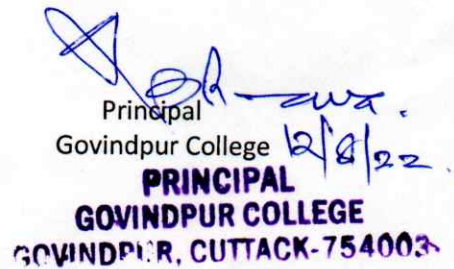 Principal
Govindpur College 12/8/22
PRINCIPAL
GOVINDPUR COLLEGE
GOVINDPUR, CUTTACK-754003